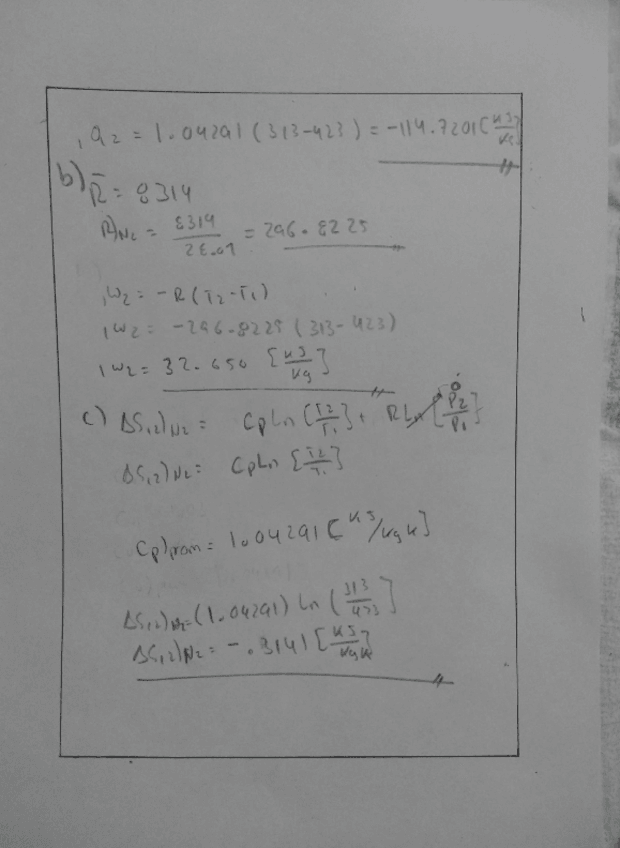 ₁q₂ = 1.04291 (313-423) = -114.7201 [KJ/Kg]
b) R̄ = 8314
R)N₂ = 8314/28.01 = 296.8225
₁W₂ = -R (T₂-T₁)
₁W₂ = -296.8225 (313-423)
₁W₂ = 32.650 [KJ/Kg]
c) ΔS₁,₂)N₂ = CpLn [T₂/T₁] + RLn [P₂/P₁] 0
ΔS₁,₂)N₂ = CpLn [T₂/T₁]
Cp)prom = 1.04291 [KJ/KgK]
ΔS₁,₂)N₂ = (1.04291) Ln (313/423]
ΔS₁,₂)N₂ = -.3141 [KJ/KgK]